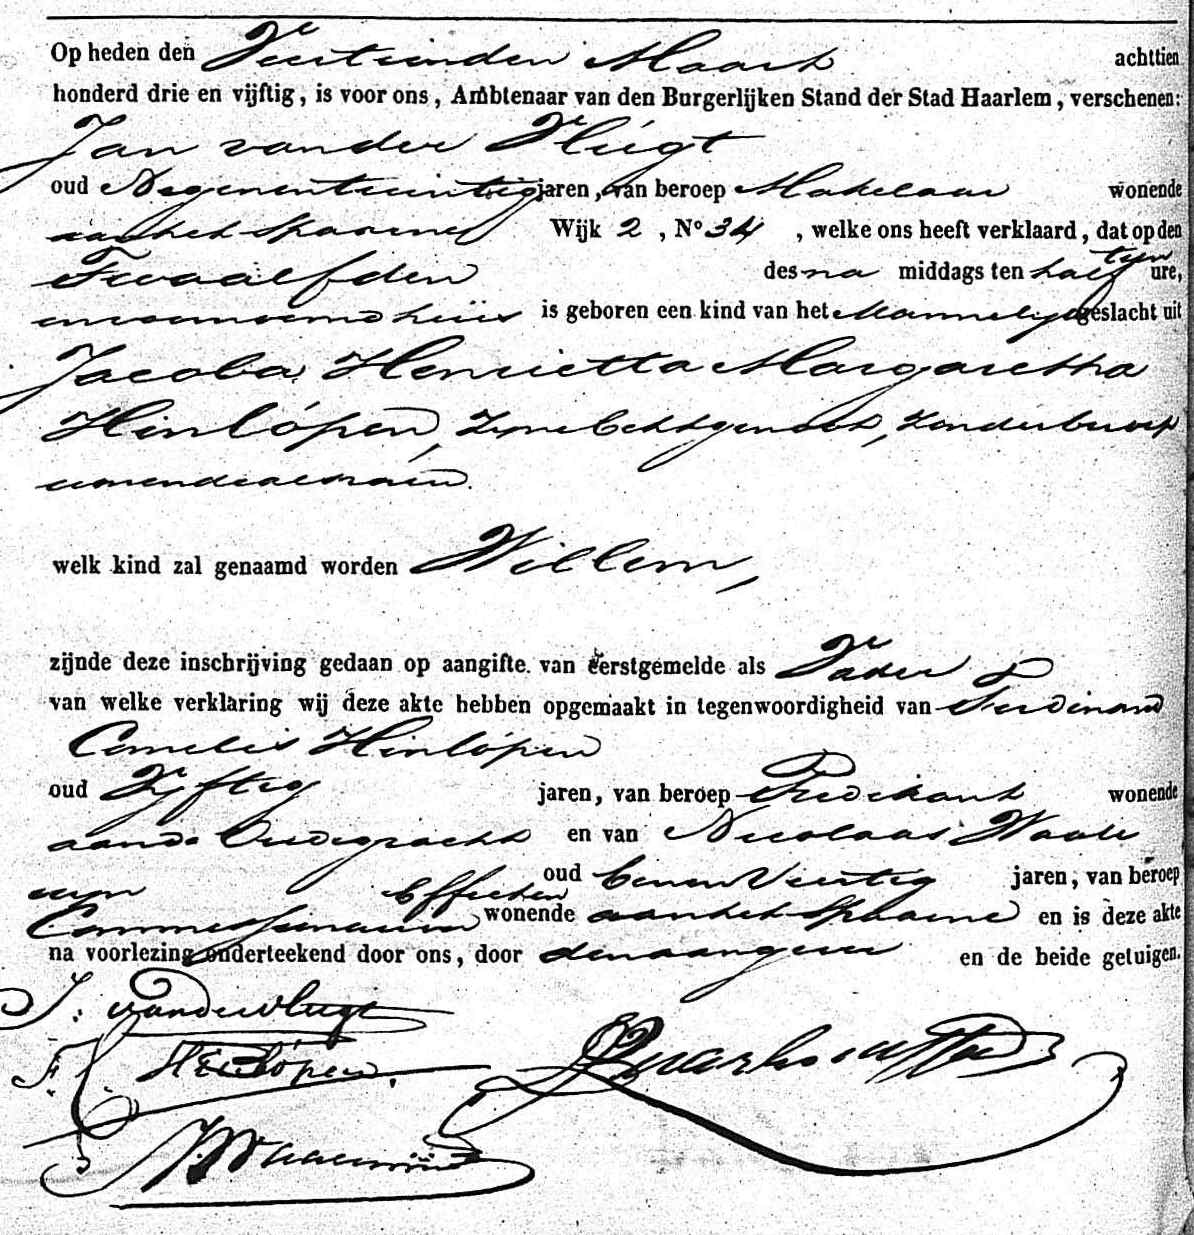 Op heden den Veertienden Maart achttien
honderd drie en vijftig, is voor ons, Ambtenaar van den Burgerlijken Stand der Stad Haarlem, verschenen:
Jan van der Vlugt
oud Negenentwintig jaren, van beroep Makelaar wonende
aan het Spaarne Wijk 2, No 34, welke ons heeft verklaard, dat op den
Twaalfden des na middags ten half tien ure,
in voornoemd huis is geboren een kind van het Mannelijk geslacht uit
Jacoba Henrietta Margaretha
Hinlópen, Zijne Echtgenoot, zonder beroep
wonende alhier.
welk kind zal genaamd worden Willem,
zijnde deze inschrijving gedaan op aangifte van eerstgemelde als Vader &
van welke verklaring wij deze akte hebben opgemaakt in tegenwoordigheid van Ferdinand
Cornelis Hinlópen
oud Vijftig jaren, van beroep Predikant wonende
aan de Oudegracht en van Nicolaas
oud Eenen Veertig jaren, van beroep
Effecten
wonende aan het Spaarne en is deze akte
na voorlezing onderteekend door ons, door den aangever en de beide getuigen.
J: van der Vlugt
F: C: Hinlópen.